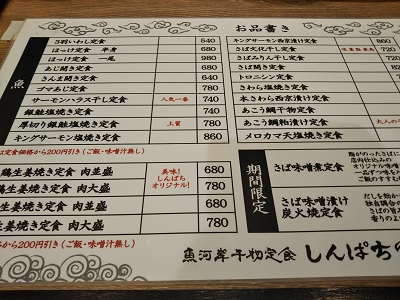 お品書き
魚
さ羽いわし定食 540
ほっけ定食 半身 680
ほっけ定食 一尾 980
あじ開き定食 680
さんま開き定食 680
ゴマあじ定食
サーモンハラス干し定食 人気一番 740
銀鮭塩焼き定食 740
厚切り銀鮭塩焼き定食 上質 780
キングサーモン塩焼き定食 860
定食価格から200円引き(ご飯・味噌汁無し)
キングサーモン西京漬け定食 860
さば文化干し定食 720
さばみりん干し定食
さば開き定食
トロニシン定食
さわら塩焼き定食
本さわら西京漬け定食
あこう鯛干物定食
あこう鯛粕漬け定食
メロカマ天塩焼き定食
鶏生姜焼き定食 肉並盛 680
生姜焼き定食 肉大盛 780
生姜焼き定食 肉並盛 680
生姜焼き定食 肉大盛 780
美味!
しんぱち
オリジナル!
から200円引き(ご飯・味噌汁無し)
期間限定
さば味噌煮定食
さば味噌漬け
炭火焼定食
魚河岸干物定食 しんぱち